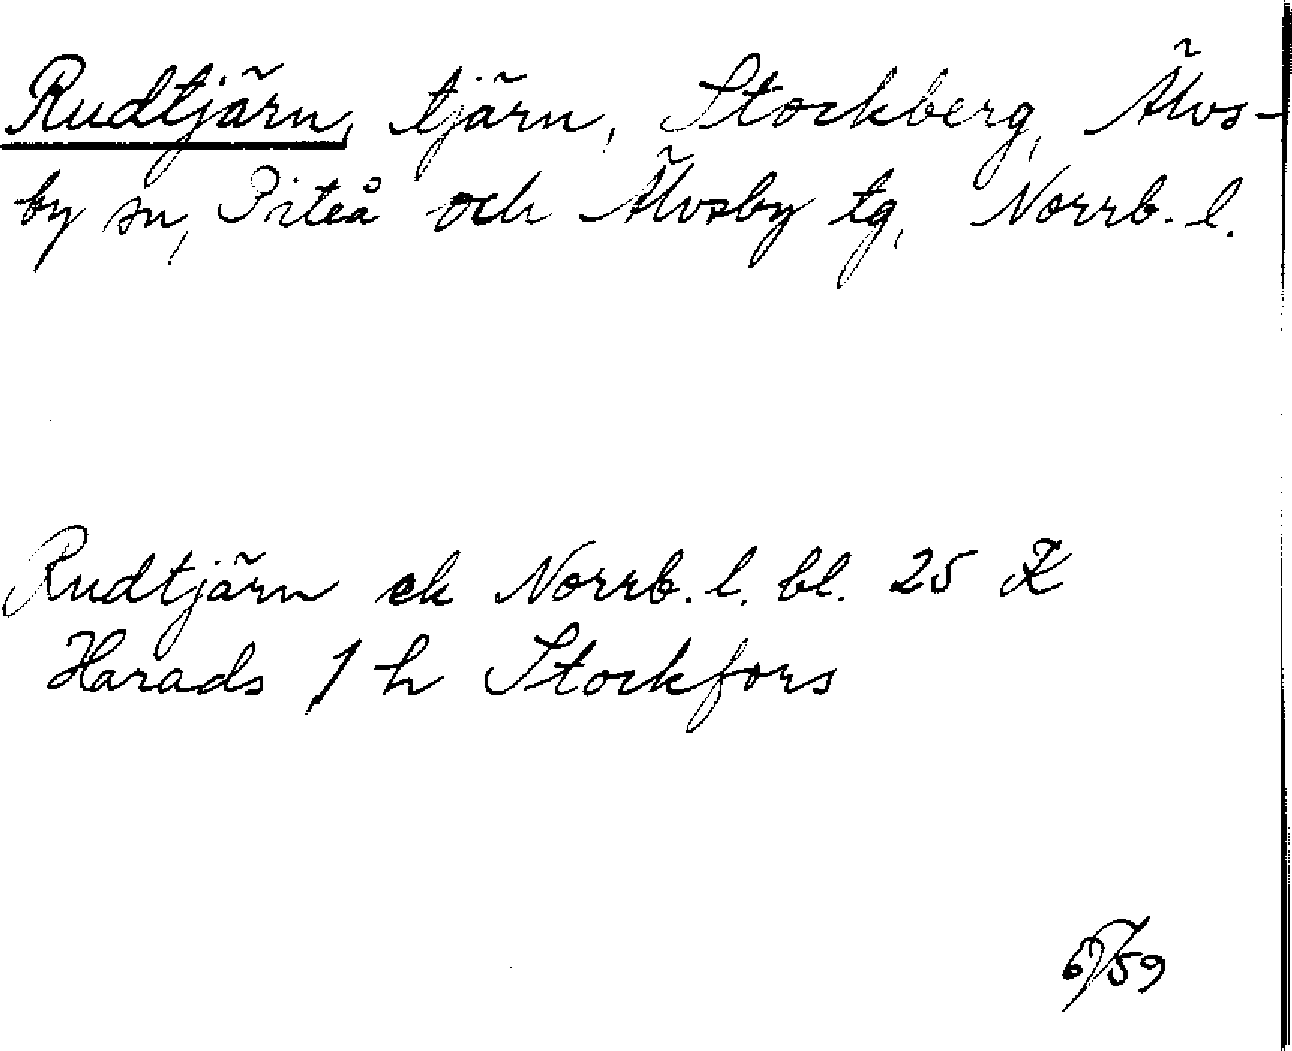 Rudtjärn, tjärn, Stockberg, Älvs-
by sn, Piteå och Älvsby tg, Norrb. l.
Rudtjärn ek Norrb. l. bl. 25 K
Harads 1 h Stockfors